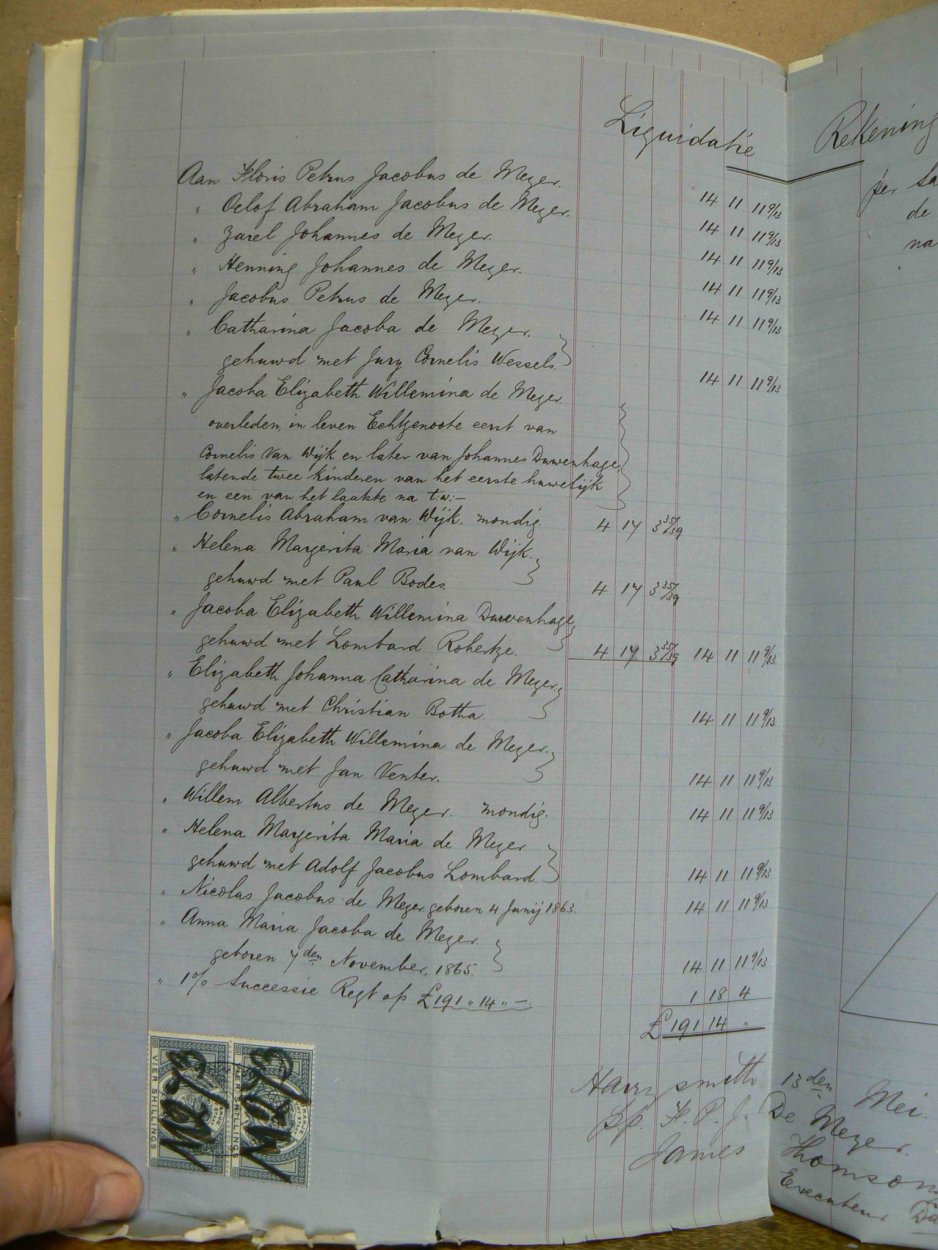 Liquidatie Rekening
Aan Floris Petrus Jacobus de Meyer. 14 11 11 9/13
" Oelof Abraham Jacobus de Meyer. 14 11 11 9/13
" Zarel Johannes de Meyer. 14 11 11 9/13
" Henning Johannes de Meyer. 14 11 11 9/13
" Jacobus Petrus de Meyer. 14 11 11 9/13
" Catharina Jacoba de Meyer.
gehuwd met Jury Cornelis Wessels. 14 11 11 9/13
" Jacoba Elizabeth Willemina de Meyer
overleden, in leven Echtgenoote eerst van
Cornelis Van Wijk en later van Johannes Duvenhage,
latende twee kinderen van het eerste huwelijk
en een van het laatste na t.w:-
" Cornelis Abraham van Wijk. mondig 4 17 3 35/39
" Helena Margerita Maria van Wijk.
gehuwd met Paul Bodes. 4 17 3 35/39
" Jacoba Elizabeth Willemina Duvenhage,
gehuwd met Lombard 4 17 3 35/39 14 11 11 9/13
" Elizabeth Johanna Catharina de Meyer,
gehuwd met Christian Botha 14 11 11 9/13
" Jacoba Elizabeth Willemina de Meyer.
gehuwd met Jan Venter. 14 11 11 9/13
" Willem Albertus de Meyer. mondig. 14 11 11 9/13
" Helena Margerita Maria de Meyer.
gehuwd met Adolf Jacobus Lombard. 14 11 11 9/13
" Nicolas Jacobus de Meyer geboren 4 Junij 1863. 14 11 11 9/13
" Anna Maria Jacoba de Meyer.
geboren 7den November, 1865. 14 11 11 9/13
" 1% Successie Regt op £191 " 14 " - 1 18 4
£191 14 "
per
de
na
Harrysmith 13den Mei.
pp. F. P. J. De Meyer.
James Thomson
Executeur
VIER SHILLINGS
VIER SHILLINGS